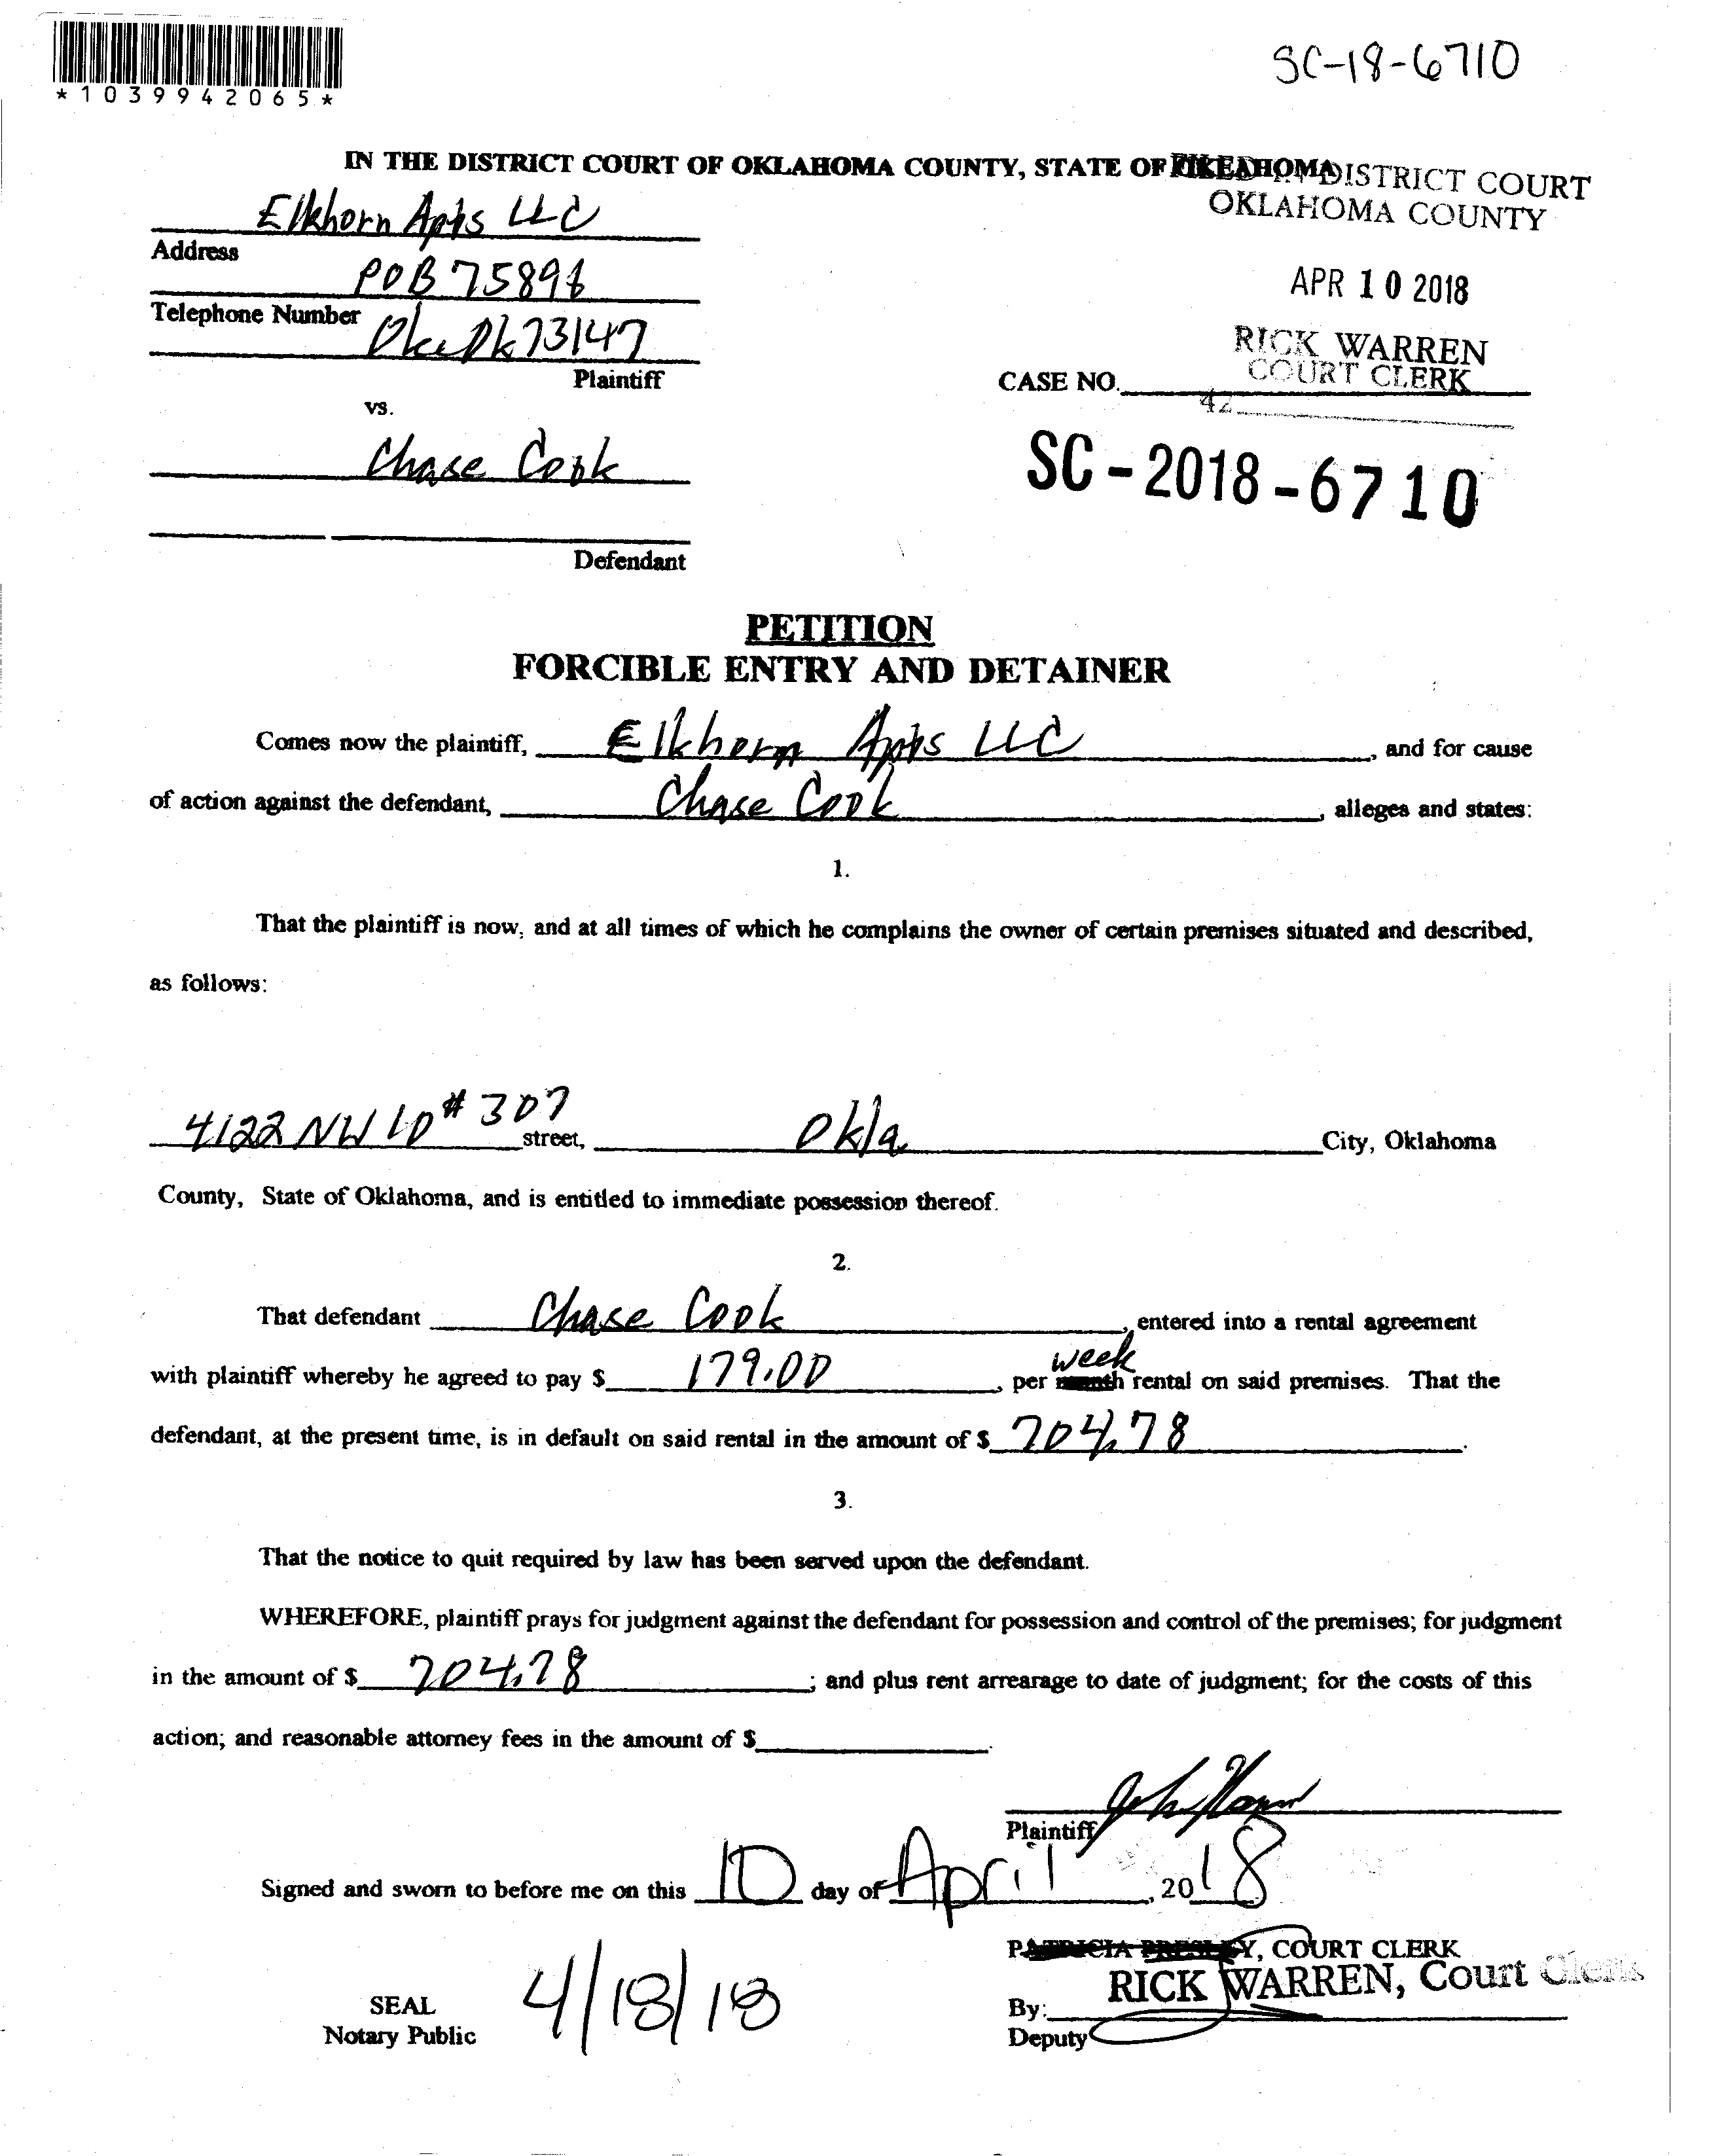 *1039942065*
SC-18-6710
IN THE DISTRICT COURT OF OKLAHOMA COUNTY, STATE OF OKLAHOMA
DISTRICT COURT
OKLAHOMA COUNTY
Elkhorn Apts LLC
Address
POB 75896
APR 10 2018
Telephone Number
Okc Ok 73147
RICK WARREN
COURT CLERK
Plaintiff
CASE NO.
42
vs.
Chase Cook
SC-2018-6710
Defendant
PETITION
FORCIBLE ENTRY AND DETAINER
Comes now the plaintiff, Elkhorn Apts LLC, and for cause
of action against the defendant, Chase Cook, alleges and states:
1.
That the plaintiff is now, and at all times of which he complains the owner of certain premises situated and described,
as follows:
4122 NW 10 # 307 street, Okla City, Oklahoma
County, State of Oklahoma, and is entitled to immediate possession thereof.
2.
That defendant Chase Cook, entered into a rental agreement
with plaintiff whereby he agreed to pay $ 179.00, per month week rental on said premises. That the
defendant, at the present time, is in default on said rental in the amount of $ 704.78.
3.
That the notice to quit required by law has been served upon the defendant.
WHEREFORE, plaintiff prays for judgment against the defendant for possession and control of the premises; for judgment
in the amount of $ 704.78; and plus rent arrearage to date of judgment; for the costs of this
action; and reasonable attorney fees in the amount of $.
Plaintiff
Signed and sworn to before me on this 10 day of April, 2018
PATRICIA PRESLEY, COURT CLERK
RICK WARREN, Court Clerk
SEAL
Notary Public
4/18/18
By:
Deputy